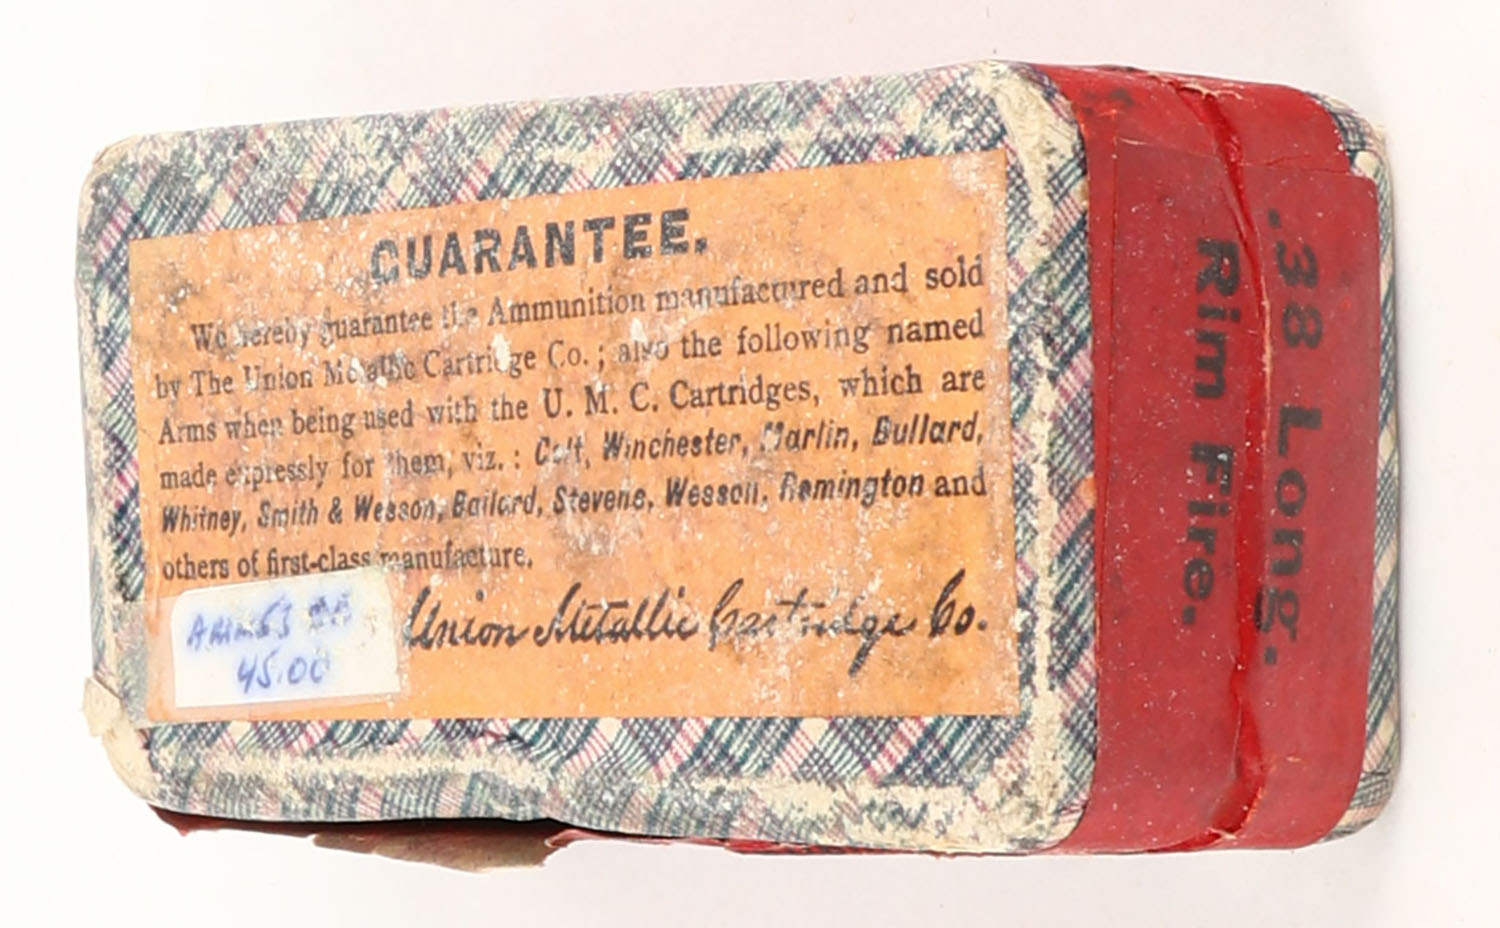 GUARANTEE.
We hereby guarantee the Ammunition manufactured and sold
by The Union Metallic Cartridge Co.; also the following named
Arms when being used with the U. M. C. Cartridges, which are
made expressly for them, viz.: Colt, Winchester, Marlin, Bullard,
Whitney, Smith & Wesson, Ballard, Stevens, Wesson, Remington and
others of first-class manufacture.
Union Metallic Cartridge Co.
45.00
.38 Long.
Rim Fire.